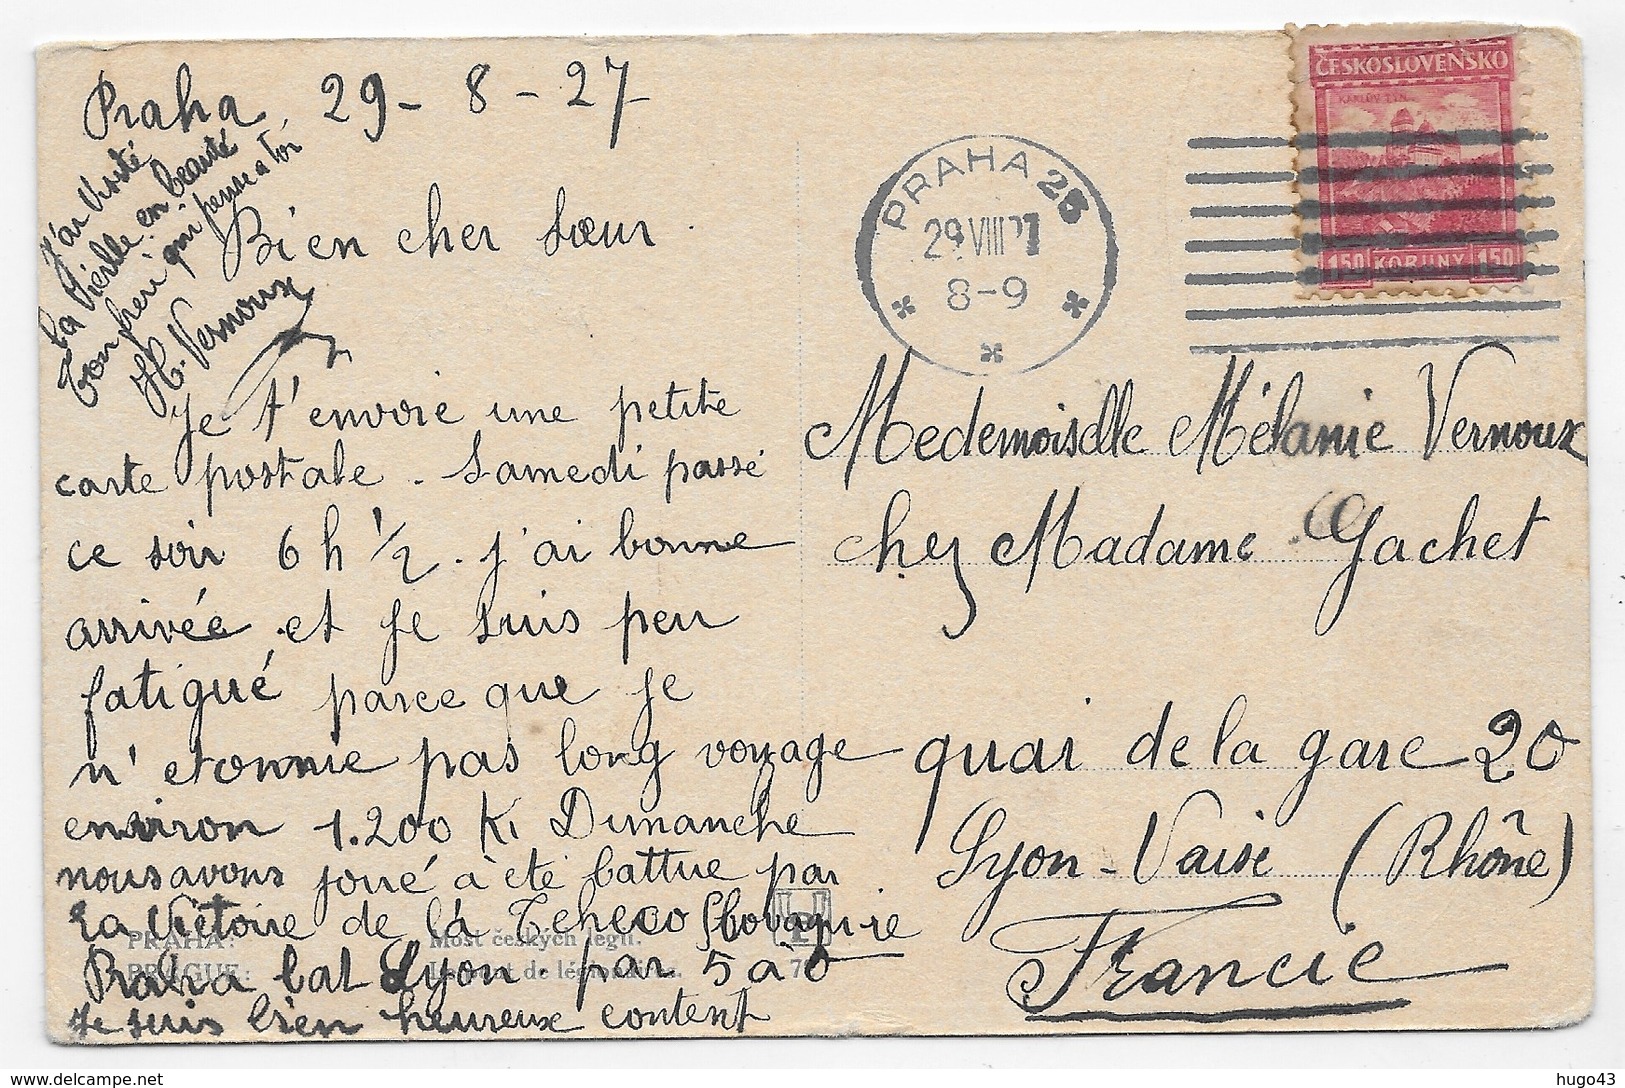 Praha, 29-8-27
J'ai visité
la vieille en beauté
ton freri qui pense a toi
H. Vernoux
Bien cher sœur.
Je t'envoie une petite
carte postale. Samedi passé
ce soir 6 h 1/2. j'ai bonne
arrivée et je suis peu
fatigué parce que je
n'etonnie pas long voyage
environ 1.200 K. Dimanche
nous avons joué à été battue par
la Victoire de la Tcheco Slovaquie
Praha bat Lyon par 5 à 0
Je suis bien heureux content
PRAHA: Most českých legií.
PRAGUE: Le pont de légionnaires.
ČESKOSLOVENSKO
KARLŮV TÝN
150 KORUNY 150
PRAHA 25
29.VIII 27
8-9
Medemoiselle Mélanie Vernoux
chez Madame Gachet
quai de la gare 20
Lyon-Vaise (Rhône)
Francie
delcampe.net
hugo43